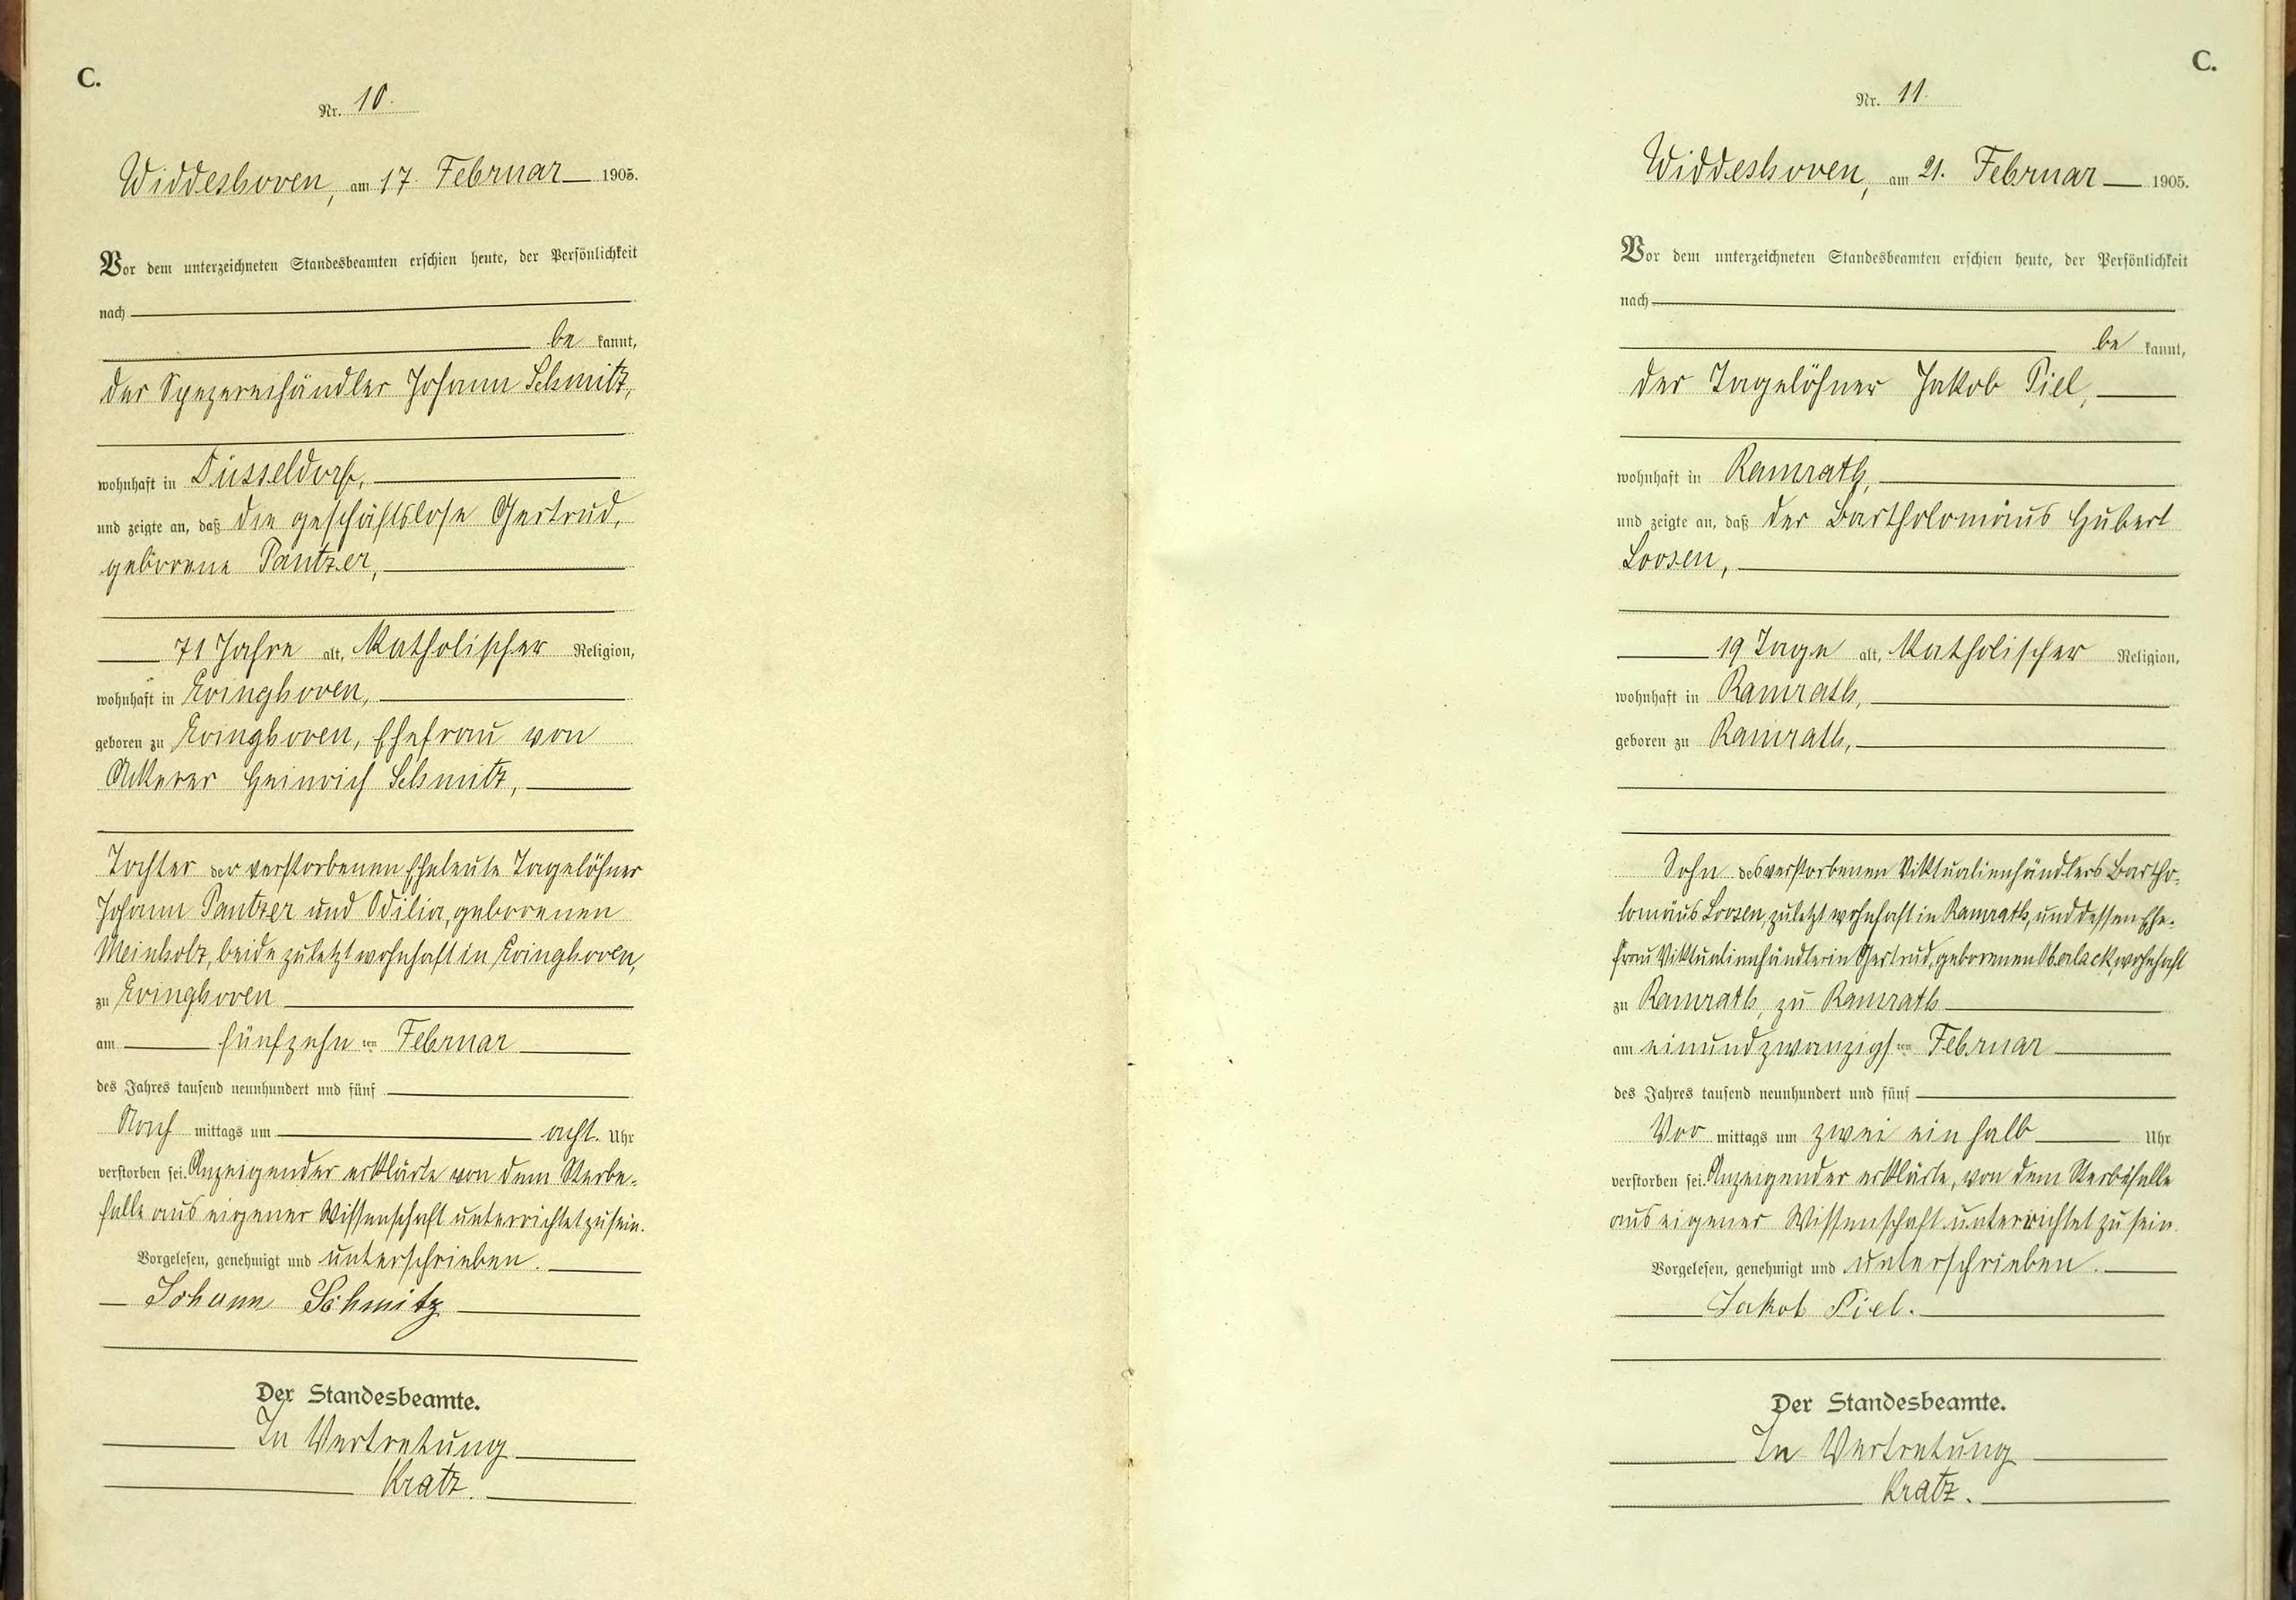 C.
Nr. 10.
Widdeshoven, am 17. Februar 1905.
Vor dem unterzeichneten Standesbeamten erschien heute, der Persönlichkeit
nach
be kannt,
der Spezereihändler Johann Schmitz,
wohnhaft in Düsseldorf,
und zeigte an, daß die geschäftslose Gertrud,
geborene Pantzer,
71 Jahre alt, Katholischer Religion,
wohnhaft in Evinghoven,
geboren zu Evinghoven, Ehefrau von
Ackerer Heinrich Schmitz,
Tochter der verstorbenen Eheleute Tagelöhner
Johann Pantzer und Odilia, geborenen
Meinholz, beide zuletzt wohnhaft in Evinghoven,
zu Evinghoven
am fünfzehn ten Februar
des Jahres tausend neunhundert und fünf
Nach mittags um acht Uhr
verstorben sei. Anzeigender erklärte von dem Sterbe-
falle aus eigener Wissenschaft unterrichtet zu sein.
Vorgelesen, genehmigt und unterschrieben.
Johann Schmitz
Der Standesbeamte.
In Vertretung
Kratz.
C.
Nr. 11.
Widdeshoven, am 21. Februar 1905.
Vor dem unterzeichneten Standesbeamten erschien heute, der Persönlichkeit
nach
be kannt,
der Tagelöhner Jakob Piel,
wohnhaft in Ramrath,
und zeigte an, daß der Bartholomäus Hubert
Loosen,
19 Tage alt, Katholischer Religion,
wohnhaft in Ramrath,
geboren zu Ramrath,
Sohn des verstorbenen Viktualienhändlers Bartho-
lomäus Loosen, zuletzt wohnhaft in Ramrath, und dessen Ehe-
frau Viktualienhändlerin Gertrud, geborenen Oberlack, wohnhaft
zu Ramrath, zu Ramrath
am einundzwanzigs ten Februar
des Jahres tausend neunhundert und fünf
Vor mittags um zwei ein halb Uhr
verstorben sei. Anzeigender erklärte, von dem Sterbefalle
aus eigener Wissenschaft unterrichtet zu sein.
Vorgelesen, genehmigt und unterschrieben.
Jakob Piel.
Der Standesbeamte.
In Vertretung
Kratz.